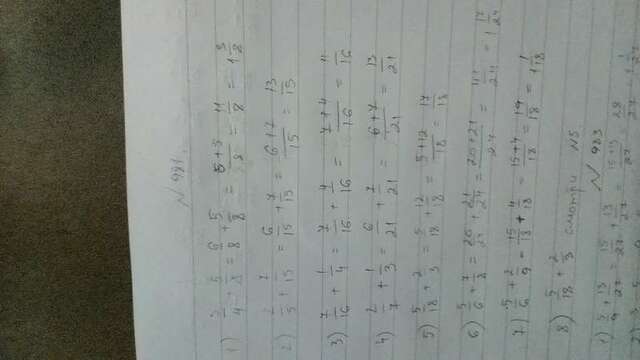 № 981.
1) 3/4 + 5/8 = 6/8 + 5/8 = 6+5/8 = 11/8 = 1 3/8
2) 2/5 + 7/15 = 6/15 + 7/15 = 6+7/15 = 13/15
3) 7/16 + 1/4 = 7/16 + 4/16 = 7+4/16 = 11/16
4) 2/7 + 1/3 = 6/21 + 7/21 = 6+7/21 = 13/21
5) 5/18 + 2/3 = 5/18 + 12/18 = 5+12/18 = 17/18
6) 5/6 + 7/8 = 20/24 + 21/24 = 20+21/24 = 41/24 = 1 17/24
7) 5/6 + 2/9 = 15/18 + 4/18 = 15+4/18 = 19/18 = 1 1/18
8) 5/18 + 2/3 смотри №5
№ 983
1) 5/9 + 13/27 = 15/27 + 13/27 = 15+13/27 = 28/27 = 1 1/27